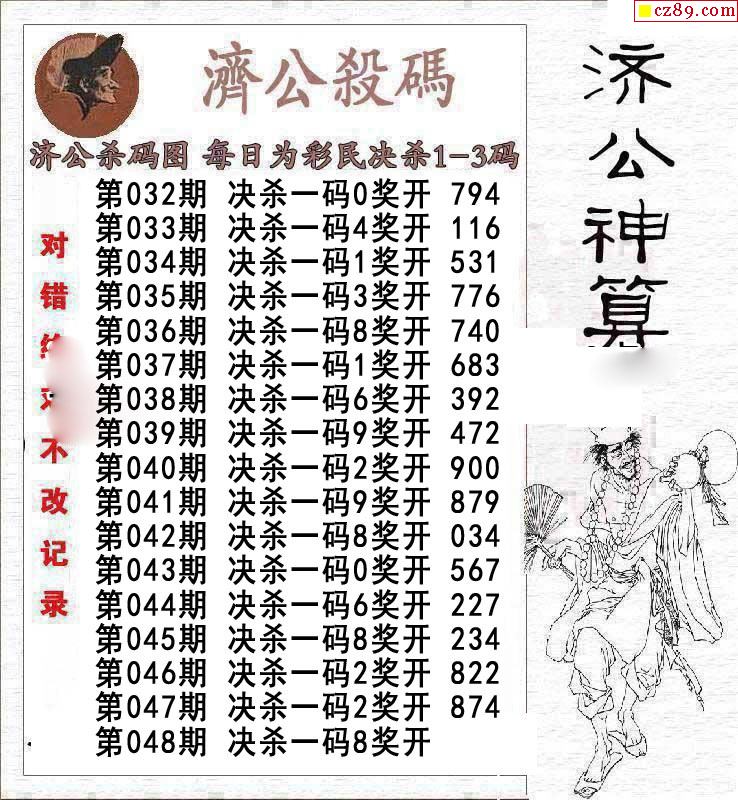 cz89.com
濟公殺碼
济公杀码图 每日为彩民决杀1-3码
第032期 决杀一码0奖开 794
第033期 决杀一码4奖开 116
第034期 决杀一码1奖开 531
第035期 决杀一码3奖开 776
第036期 决杀一码8奖开 740
第037期 决杀一码1奖开 683
第038期 决杀一码6奖开 392
第039期 决杀一码9奖开 472
第040期 决杀一码2奖开 900
第041期 决杀一码9奖开 879
第042期 决杀一码8奖开 034
第043期 决杀一码0奖开 567
第044期 决杀一码6奖开 227
第045期 决杀一码8奖开 234
第046期 决杀一码2奖开 822
第047期 决杀一码2奖开 874
第048期 决杀一码8奖开
对错不改记录
济公神算